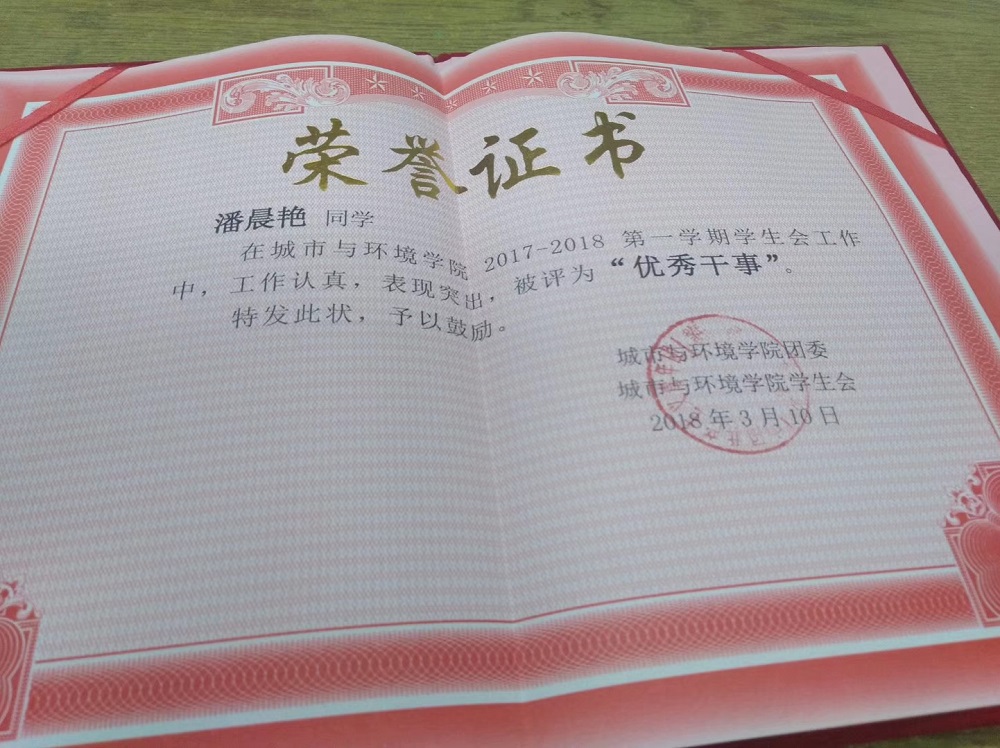 荣誉证书
潘晨艳 同学
在城市与环境学院 2017-2018 第一学期学生会工作
中，工作认真，表现突出，被评为“优秀干事”。
特发此状，予以鼓励。
城市与环境学院团委
城市与环境学院学生会
2018 年 3 月 10 日